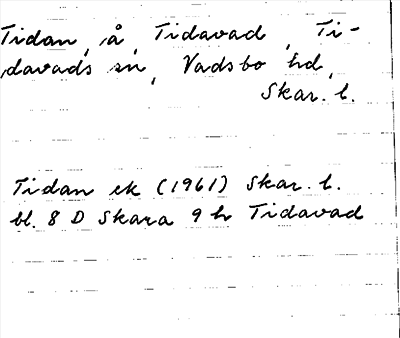 Tidan, å, Tidavad, Ti-
davads sn, Vadsbo hd,
Skar. l.
Tidan ek (1961) Skar. l.
bl. 8 D Skara 9 h Tidavad